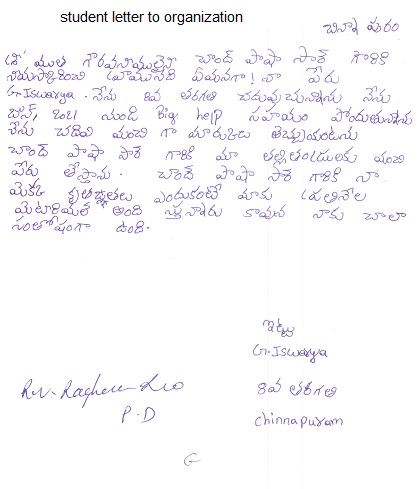 student letter to organization
చిన్నా పురం
శ్రీ ముత గౌరవనీయులైన చాంద్ పాషా సార్ గారికి
నమస్కరించి వ్రాయునది ఏమనగా! నా పేరు
G. Iswarya. నేను 8వ తరగతి చదువుచున్నాను నేను
జూన్, 2021 నుండి Big help సహాయం పొందుతున్నాను
నేను చదివి మంచి గా మారుకులు తెచ్చుకుంటను
చాంద్ పాషా సార్ గారికి మా తల్లితండ్రులకు మంచి
పేరు తెస్తాను. చాంద్ పాషా సార్ గారికి నా
కృతజ్ఞతలు ఎందుకంటే మాకు ప్రతినెల
మెటీరియల్ అంది స్తున్నారు కావున నాకు చాలా
సంతోషంగా ఉంది.
ఇట్లు
G. Iswarya
8వ తరగతి
chinnapuram
R.V. Raghava Rao
P.D
G